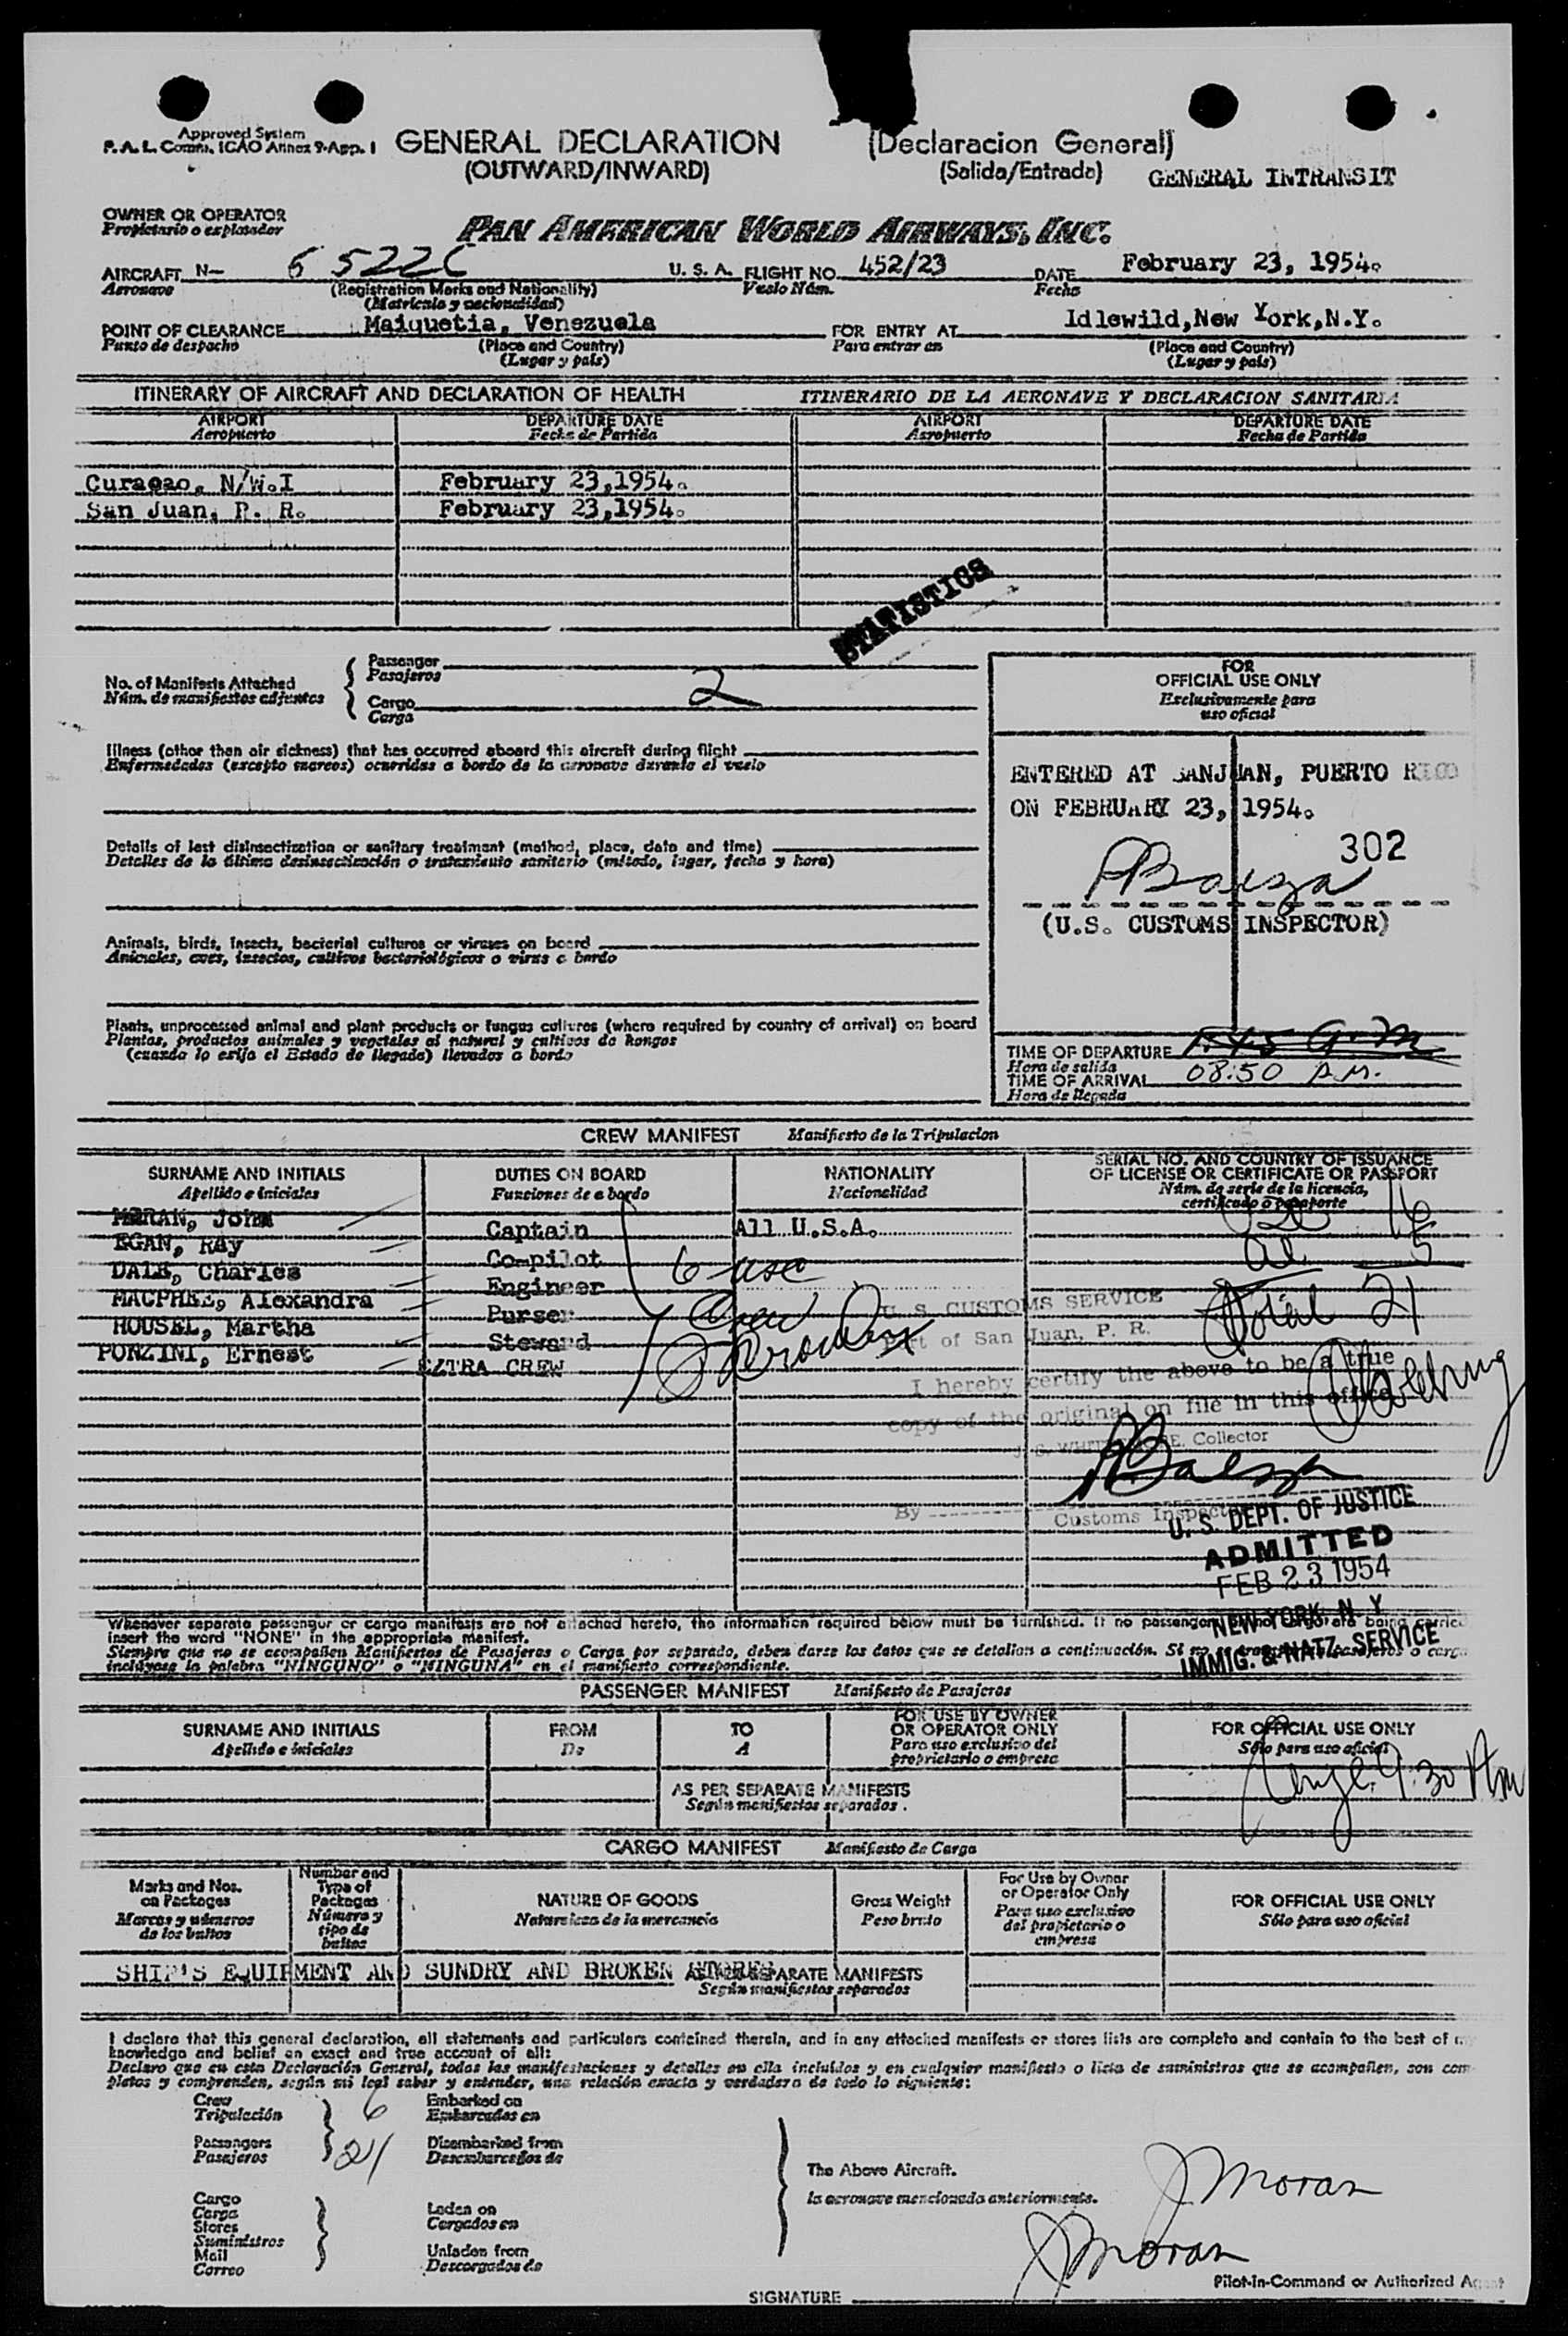 Approved System
P. A. L. Comm. ICAO Annex 9-App. 1
GENERAL DECLARATION (Declaracion General)
(OUTWARD/INWARD) (Salida/Entrada)
GENERAL INTRANSIT
OWNER OR OPERATOR
Propietario o explotador
PAN AMERICAN WORLD AIRWAYS, INC.
AIRCRAFT N- 6 5226 U. S. A. FLIGHT NO. 452/23 DATE February 23, 1954.
Aeronave (Registration Marks and Nationality) Vuelo Núm. Fecha
(Matricula y nacionalidad)
POINT OF CLEARANCE Maiquetia, Venezuela FOR ENTRY AT Idlewild, New York, N.Y.
Punto de despacho (Place and Country) Para entrar en (Place and Country)
(Lugar y país) (Lugar y país)
ITINERARY OF AIRCRAFT AND DECLARATION OF HEALTH ITINERARIO DE LA AERONAVE Y DECLARACION SANITARIA
AIRPORT DEPARTURE DATE AIRPORT DEPARTURE DATE
Aeropuerto Fecha de Partida Aeropuerto Fecha de Partida
Curaçao, N/W.I February 23,1954.
San Juan, P. R. February 23,1954.
STATISTICS
No. of Manifests Attached
Núm. de manifiestos adjuntos
Passenger
Pasajeros
Cargo
Carga
2
FOR
OFFICIAL USE ONLY
Exclusivamente para
uso oficial
Illness (other than air sickness) that has occurred aboard this aircraft during flight
Enfermedades (excepto mareos) ocurridas a bordo de la aeronave durante el vuelo
ENTERED AT SANJUAN, PUERTO RICO
ON FEBRUARY 23, 1954.
302
(U.S. CUSTOMS INSPECTOR)
Details of last disinsectization or sanitary treatment (method, place, date and time)
Detalles de la última desinsectización o tratamiento sanitario (método, lugar, fecha y hora)
Animals, birds, insects, bacterial cultures or viruses on board
Animales, aves, insectos, cultivos bacteriológicos o virus a bordo
Plants, unprocessed animal and plant products or fungus cultures (where required by country of arrival) on board
Plantas, productos animales y vegetales al natural y cultivos de hongos
(cuando lo exija el Estado de llegada) llevados a bordo
TIME OF DEPARTURE
Hora de salida
TIME OF ARRIVAL 08:50 P.M.
Hora de llegada
CREW MANIFEST Manifiesto de la Tripulacion
SURNAME AND INITIALS DUTIES ON BOARD NATIONALITY SERIAL NO. AND COUNTRY OF ISSUANCE
Apellido e iniciales Funciones de a bordo Nacionalidad OF LICENSE OR CERTIFICATE OR PASSPORT
Núm. de serie de la licencia,
certificado o pasaporte
MORAN, John Captain All U.S.A.
EGAN, Ray Co-pilot
DALE, Charles Engineer
MACPHEE, Alexandra Purser
HOUSEL, Martha Steward
PONZINI, Ernest EXTRA CREW
6 usc
Crew
16
al 5
Total 21
U. S. CUSTOMS SERVICE
Port of San Juan, P. R.
I hereby certify the above to be a true
copy of the original on file in this office
Collector
By
Customs Inspector
U. S. DEPT. OF JUSTICE
ADMITTED
FEB 23 1954
NEW YORK, N Y
IMMIG. & NATZ. SERVICE
Whenever separate passenger or cargo manifests are not attached hereto, the information required below must be furnished. If no passengers and/or cargo are being carried
insert the word "NONE" in the appropriate manifest.
Siempre que no se acompañen Manifiestos de Pasajeros o Carga por separado, deben darse los datos que se detallan a continuación. Si no se transportan pasajeros o carga
inclúyase la palabra "NINGUNO" o "NINGUNA" en el manifiesto correspondiente.
PASSENGER MANIFEST Manifiesto de Pasajeros
SURNAME AND INITIALS FROM TO FOR USE BY OWNER FOR OFFICIAL USE ONLY
Apellido e iniciales De A OR OPERATOR ONLY Sólo para uso oficial
Para uso exclusivo del
propietario o empresa
AS PER SEPARATE MANIFESTS
Según manifiestos separados.
9:30 Pm
CARGO MANIFEST Manifiesto de Carga
Marks and Nos.
on Packages
Marcas y números
de los bultos
Number and
Type of
Packages
Número y
tipo de
bultos
NATURE OF GOODS
Naturaleza de la mercancía
Gross Weight
Peso bruto
For Use by Owner
or Operator Only
Para uso exclusivo
del propietario o
empresa
FOR OFFICIAL USE ONLY
Sólo para uso oficial
SHIP'S EQUIPMENT AND SUNDRY AND BROKEN STORES
AS PER SEPARATE MANIFESTS
Según manifiestos separados
I declare that this general declaration, all statements and particulars contained therein, and in any attached manifests or stores lists are complete and contain to the best of my
knowledge and belief an exact and true account of all:
Declaro que en esta Declaración General, todas las manifestaciones y detalles en ella incluídos y en cualquier manifiesto o lista de suministros que se acompañen, son com-
pletos y comprenden, según mi leal saber y entender, una relación exacta y verdadera de todo lo siguiente:
Crew 6 Embarked on
Tripulación Embarcados en
Passengers 21 Disembarked from
Pasajeros Desembarcados de
The Above Aircraft.
la aeronave mencionada anteriormente.
Cargo
Carga
Stores
Suministros
Mail
Correo
Laden on
Cargados en
Unladen from
Descargados de
J Moran
J Moran
Pilot-in-Command or Authorized Agent
SIGNATURE